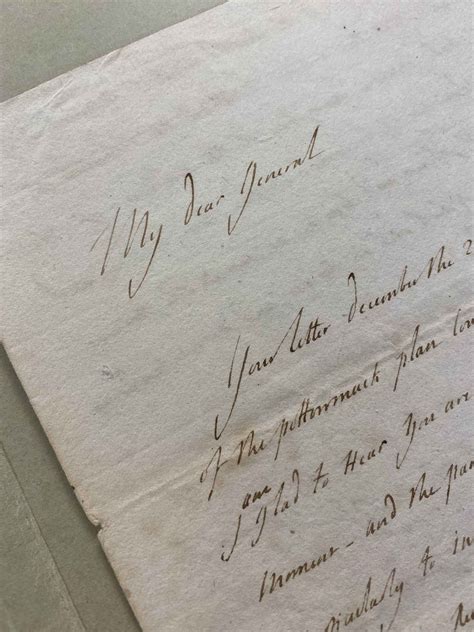 My dear General
Your letter december the 2
of the pottowmack plan
am
I glad to Hear You are
moment - and the par
ticularly to in